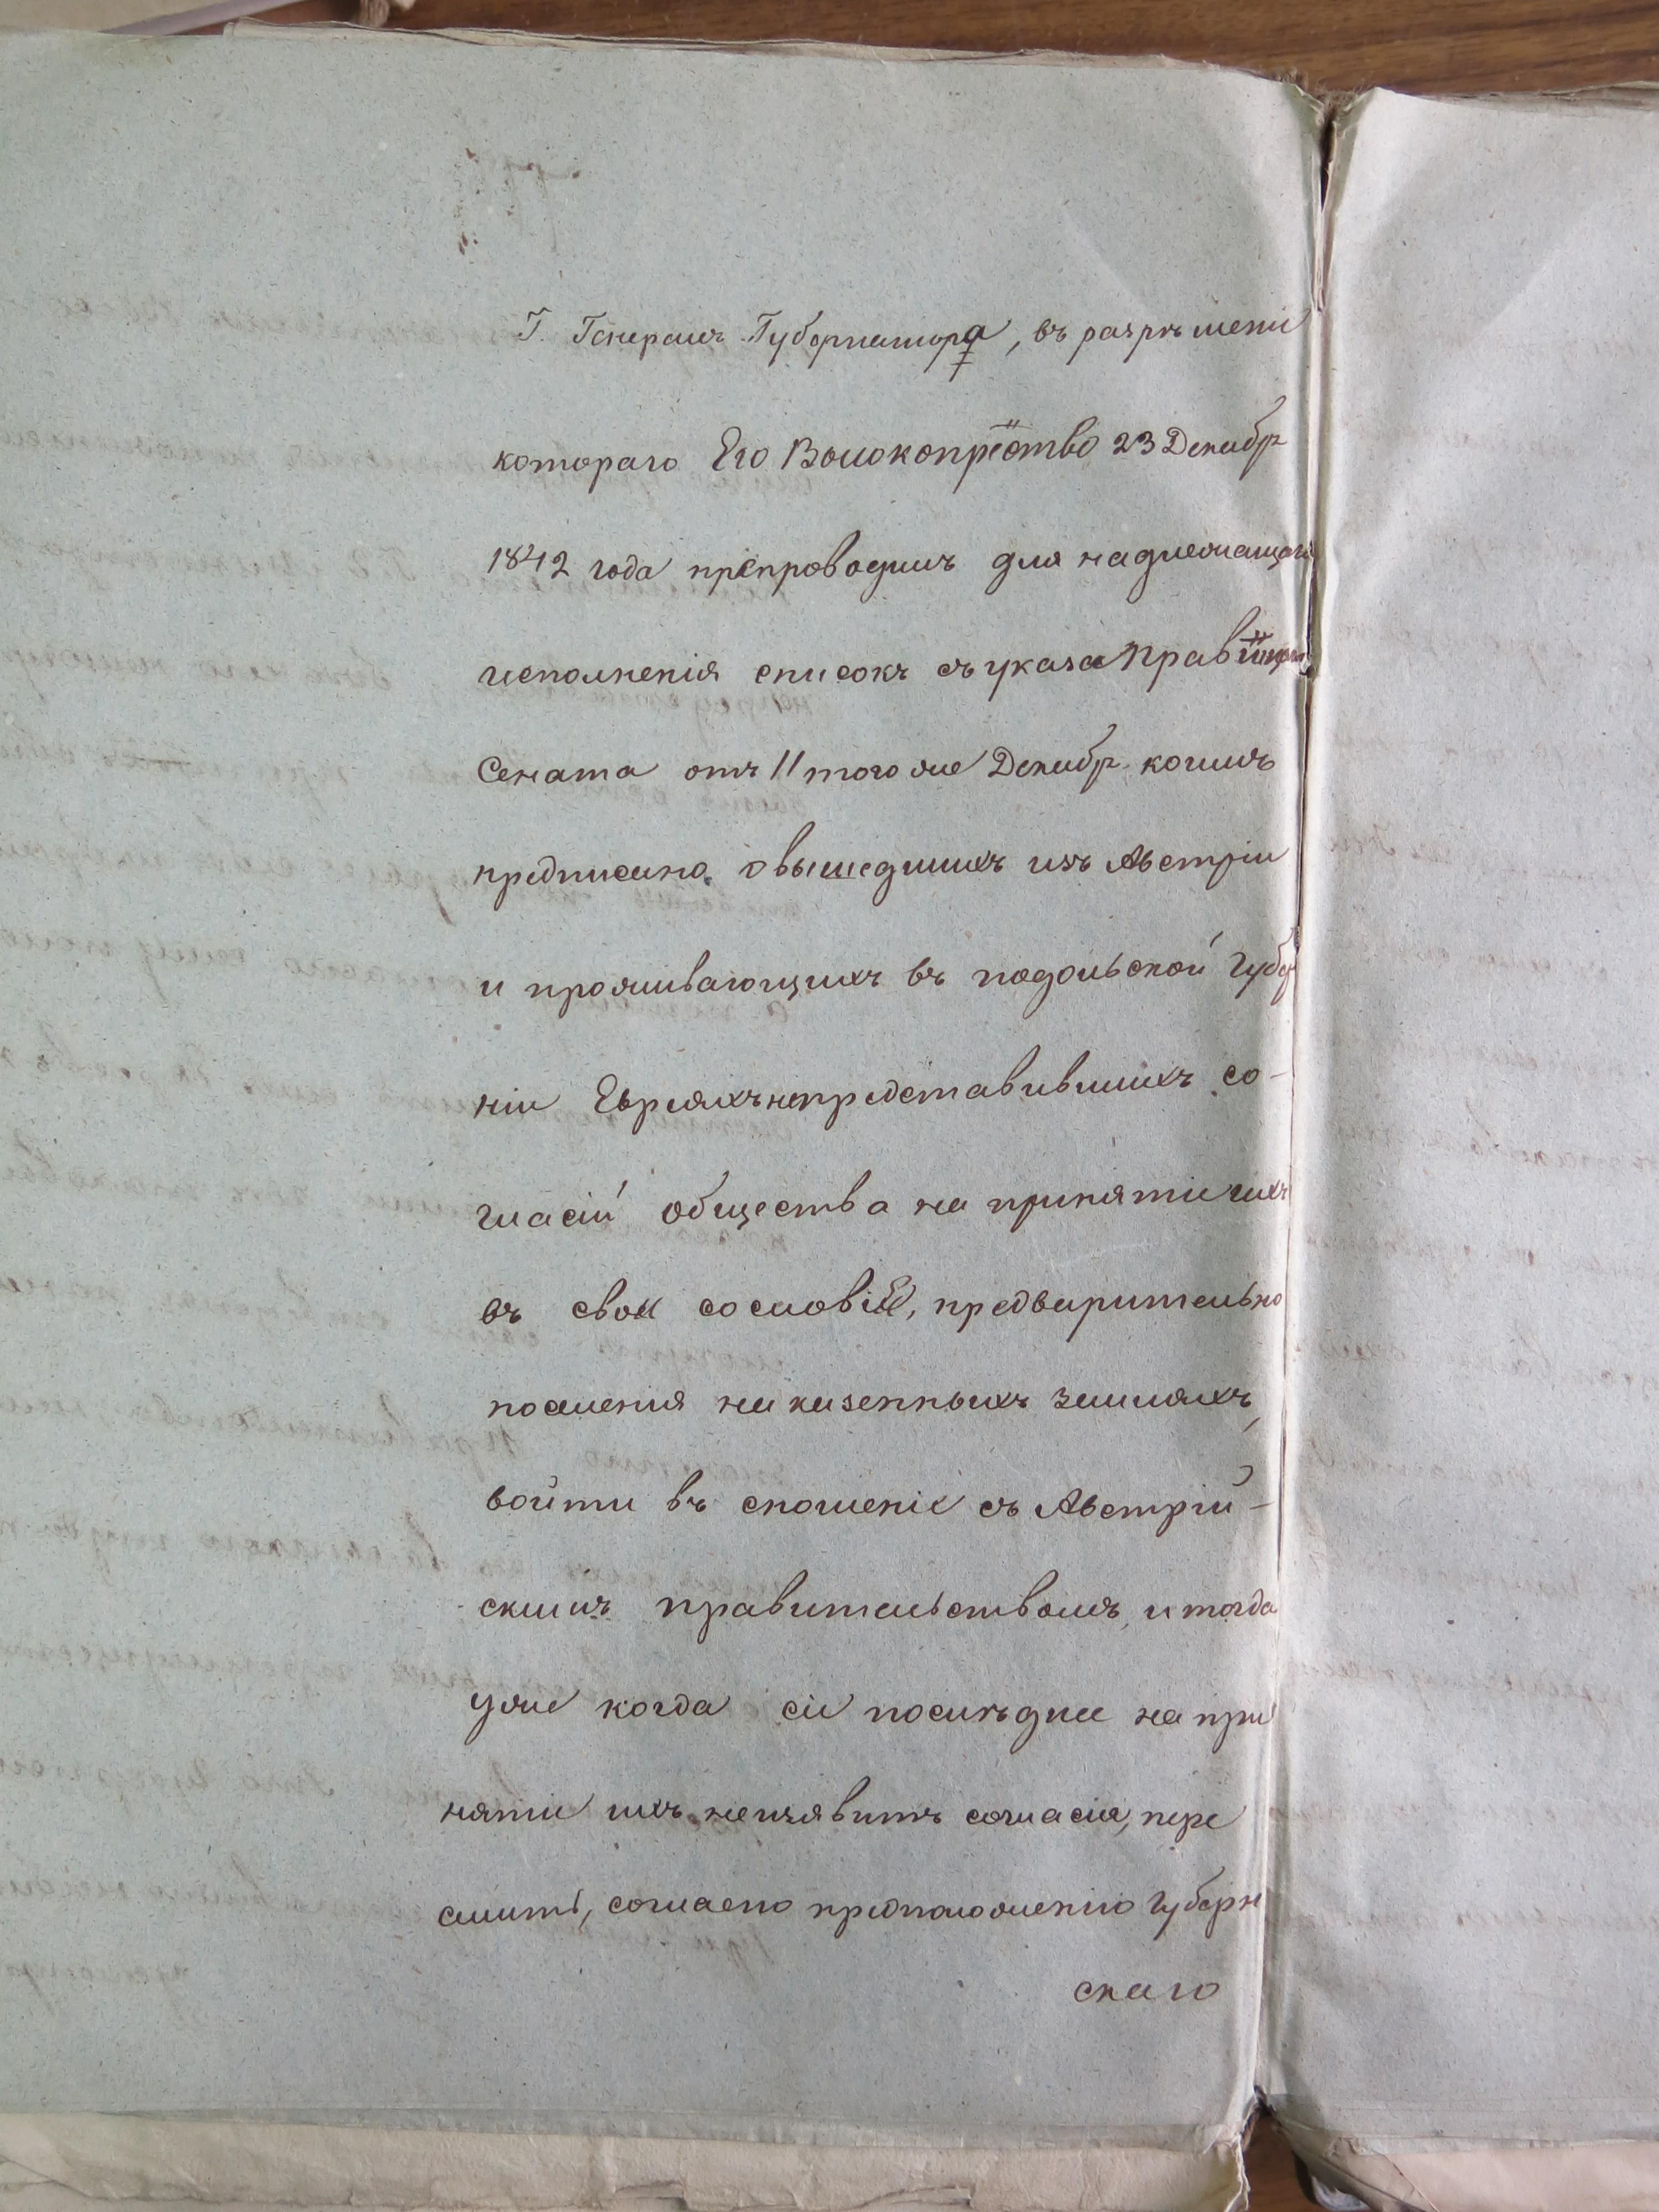 Г. Генералъ Губернатора, въ разрѣшеніе
котораго Его Высокопрѐство 23 Декабр
1842 года препроводилъ для надлежащаго
исполненія списокъ съ указа Прав
Сената отъ 11 того же Декабр. коимъ
предписано о вышедшихъ изъ Австріи
и проживающихъ въ подольской Губер
ніи Евреяхъ непредставившихъ со-
гласій общества на принятіе ихъ
въ свои сословіе, предварительно
поселенія на казенныхъ земляхъ,
войти въ сношеніе съ Австрій-
скимъ правительствомъ, и тогда
уже когда сіе послѣднее на при
нятіе ихъ неизявитъ согласія, пере
слить, согласно предположенію Губерн
скаго